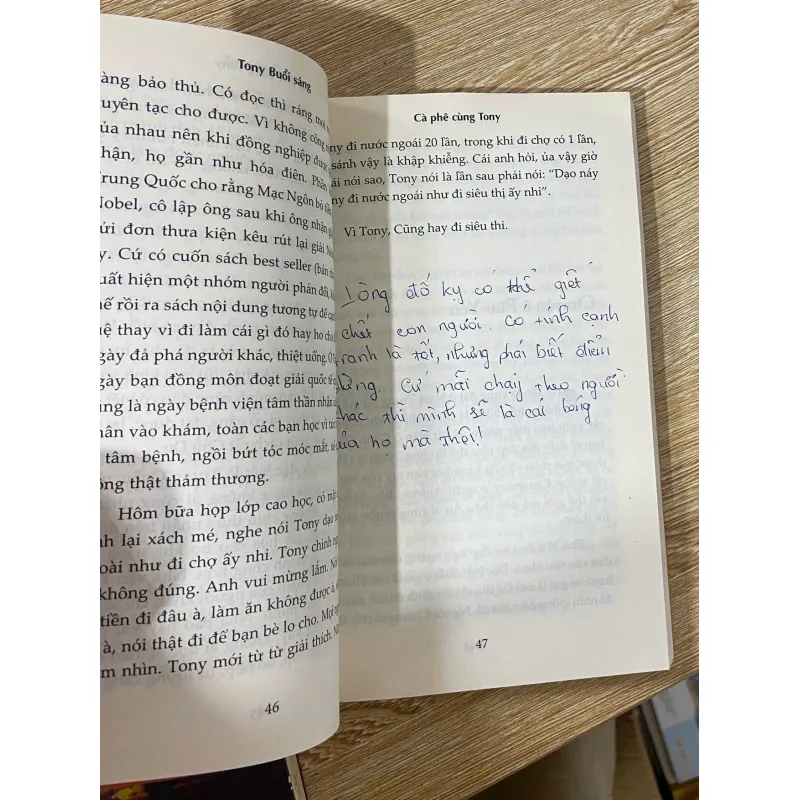 Tony Buổi sáng
àng bảo thủ. Có đọc thì ráng
uyên tạc cho được. Vì không công
ủa nhau nên khi đồng nghiệp được
hận, họ gần như hóa điên. Phần
Trung Quốc cho rằng Mạc Ngôn bỏ
Nobel, cô lập ông sau khi ông nhận
ửi đơn thưa kiện kêu rút lại giải
y. Cứ có cuốn sách best seller (bán
uất hiện một nhóm người phản đối,
hế rồi ra sách nội dung tương tự để
hệ thay vì đi làm cái gì đó hay ho cho
gày đả phá người khác, thiệt uổng.
gày bạn đồng môn đoạt giải quốc tế
ũng là ngày bệnh viện tâm thần nhận
hân vào khám, toàn các bạn học vì
tâm bệnh, ngồi bứt tóc móc mắt,
ông thật thảm thương.
Hôm bữa họp lớp cao học, có
nh lại xách mé, nghe nói Tony dạo
oài như đi chợ ấy nhi. Tony chỉnh
không đúng. Anh vui mừng lắm.
tiền đi đâu à, làm ăn không được à,
à, nói thật đi để bạn bè lo cho. Mọi
m nhìn. Tony mới từ từ giải thích.
46
Cà phê cùng Tony
ny đi nước ngoái 20 lần, trong khi đi chợ có 1 lần,
sánh vậy là khập khiễng. Cái anh hỏi, ủa vậy giờ
ải nói sao, Tony nói là lần sau phải nói: “Dạo này
ny đi nước ngoái như đi siêu thị ấy nhi”.
Vì Tony, Cũng hay đi siêu thi.
Lòng đố kỵ có thể giết
chết con người. Có tính cạnh
tranh là tốt, nhưng phải biết điểm
dừng. Cứ mãi chạy theo người
khác thì mình sẽ là cái bóng
của họ mà thôi!
47